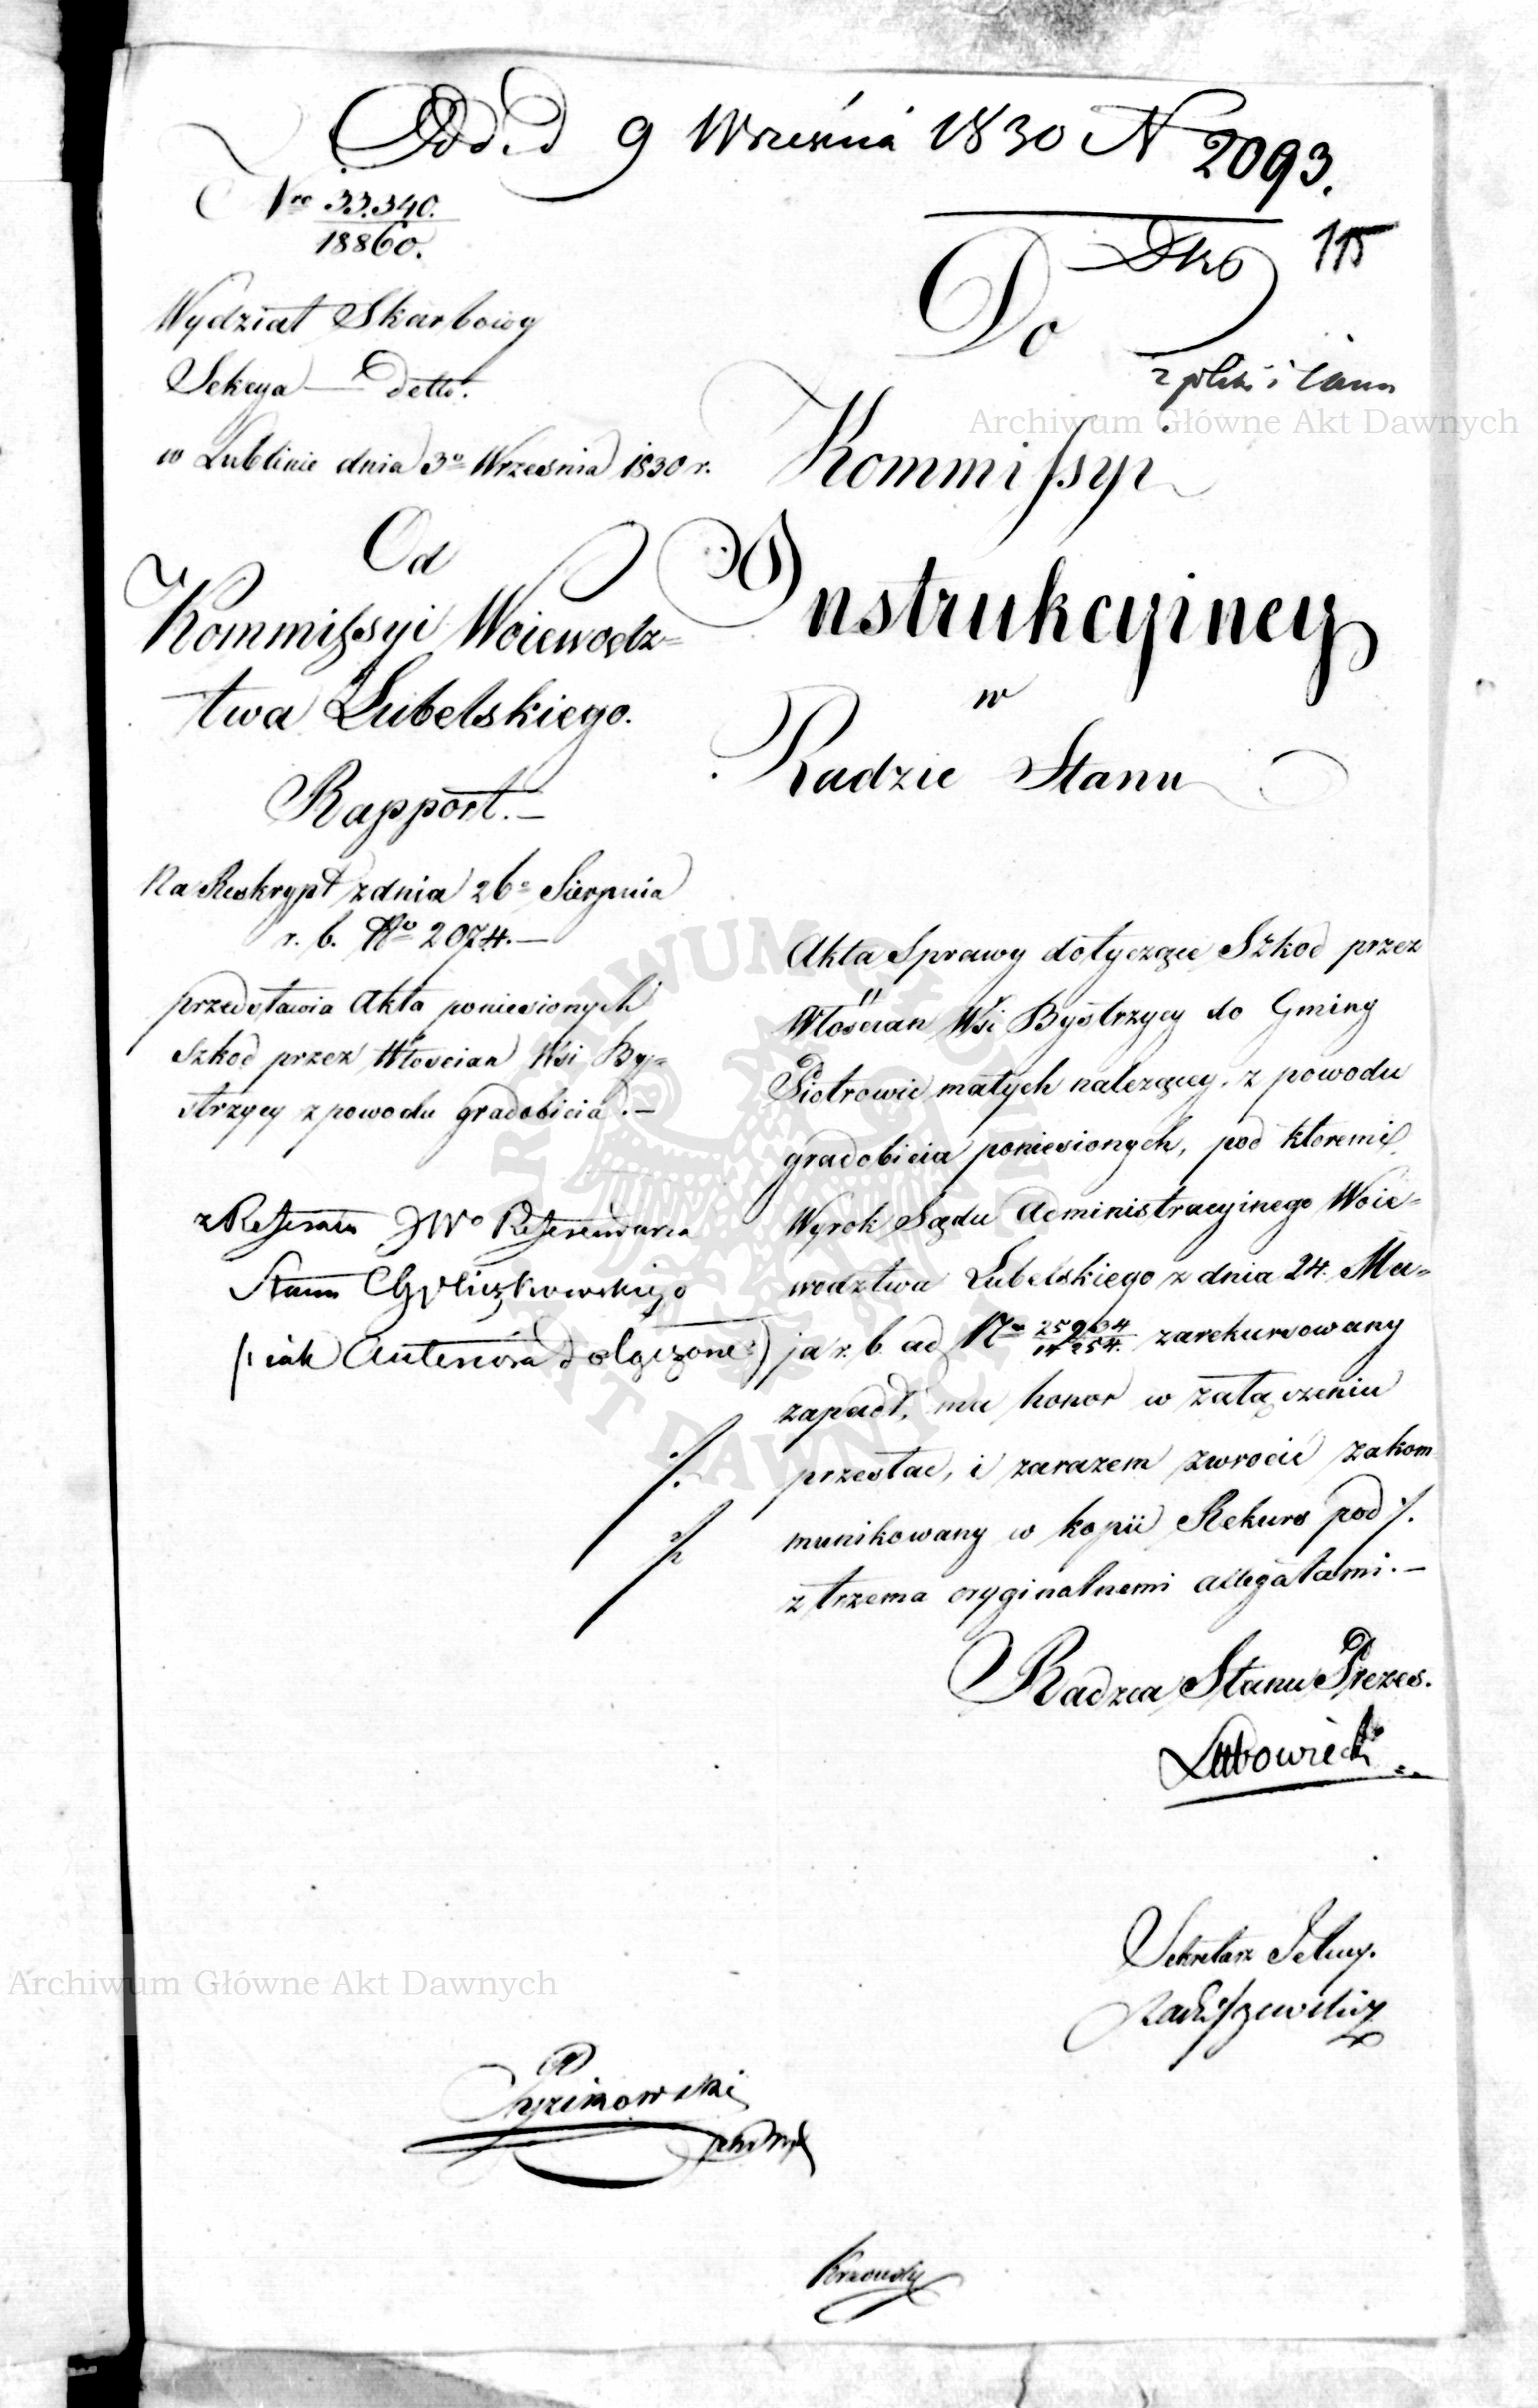 Odd. d 9 Września 1830 N 2093.
Nro 33.340.
18860.
115
Wydział Skarbowy
Sekcya — Detto.
w Lublinie dnia 3º Września 1830 r.
Od
Kommissyi Woiewodz=
twa Lubelskiego.
Rapport.—
Na Reskrypt z dnia 26º Sierpnia
r. b. Nº 2074.—
przedstawia Akta poniesionych
Szkod przez Włościan Wsi By=
strzycy z powodu gradobicia.—
z Referatu JWº Referendarza
Stanu
(: iak Anteriora dołączone :)
Do
Kommissyi
Instrukcyiney
w
Radzie Stanu
Akta Sprawy dotyczące Szkod przez
Włościan Wsi Bystrzycy do Gminy
Piotrowic małych należący, z powodu
gradobicia poniesionych, pod ktoremi
Wyrok Sądu Administracyinego Woie=
wodztwa Lubelskiego z dnia 24. Ma=
ja r. b. ad Nro 25964/14254. zarekursowany
zapadł, ma honor w załączeniu
przesłać, i zarazem zwrocić zakom
munikowany w kopii Rekurs pod ./.
z trzema oryginalnemi allegatami.—
Radzca Stanu Prezes.
Lubowiecki
Sekretarz Jelny.
Radziszewski
Archiwum Główne Akt Dawnych
Archiwum Główne Akt Dawnych
ARCHIWUM GŁÓWNE
AKT DAWNYCH